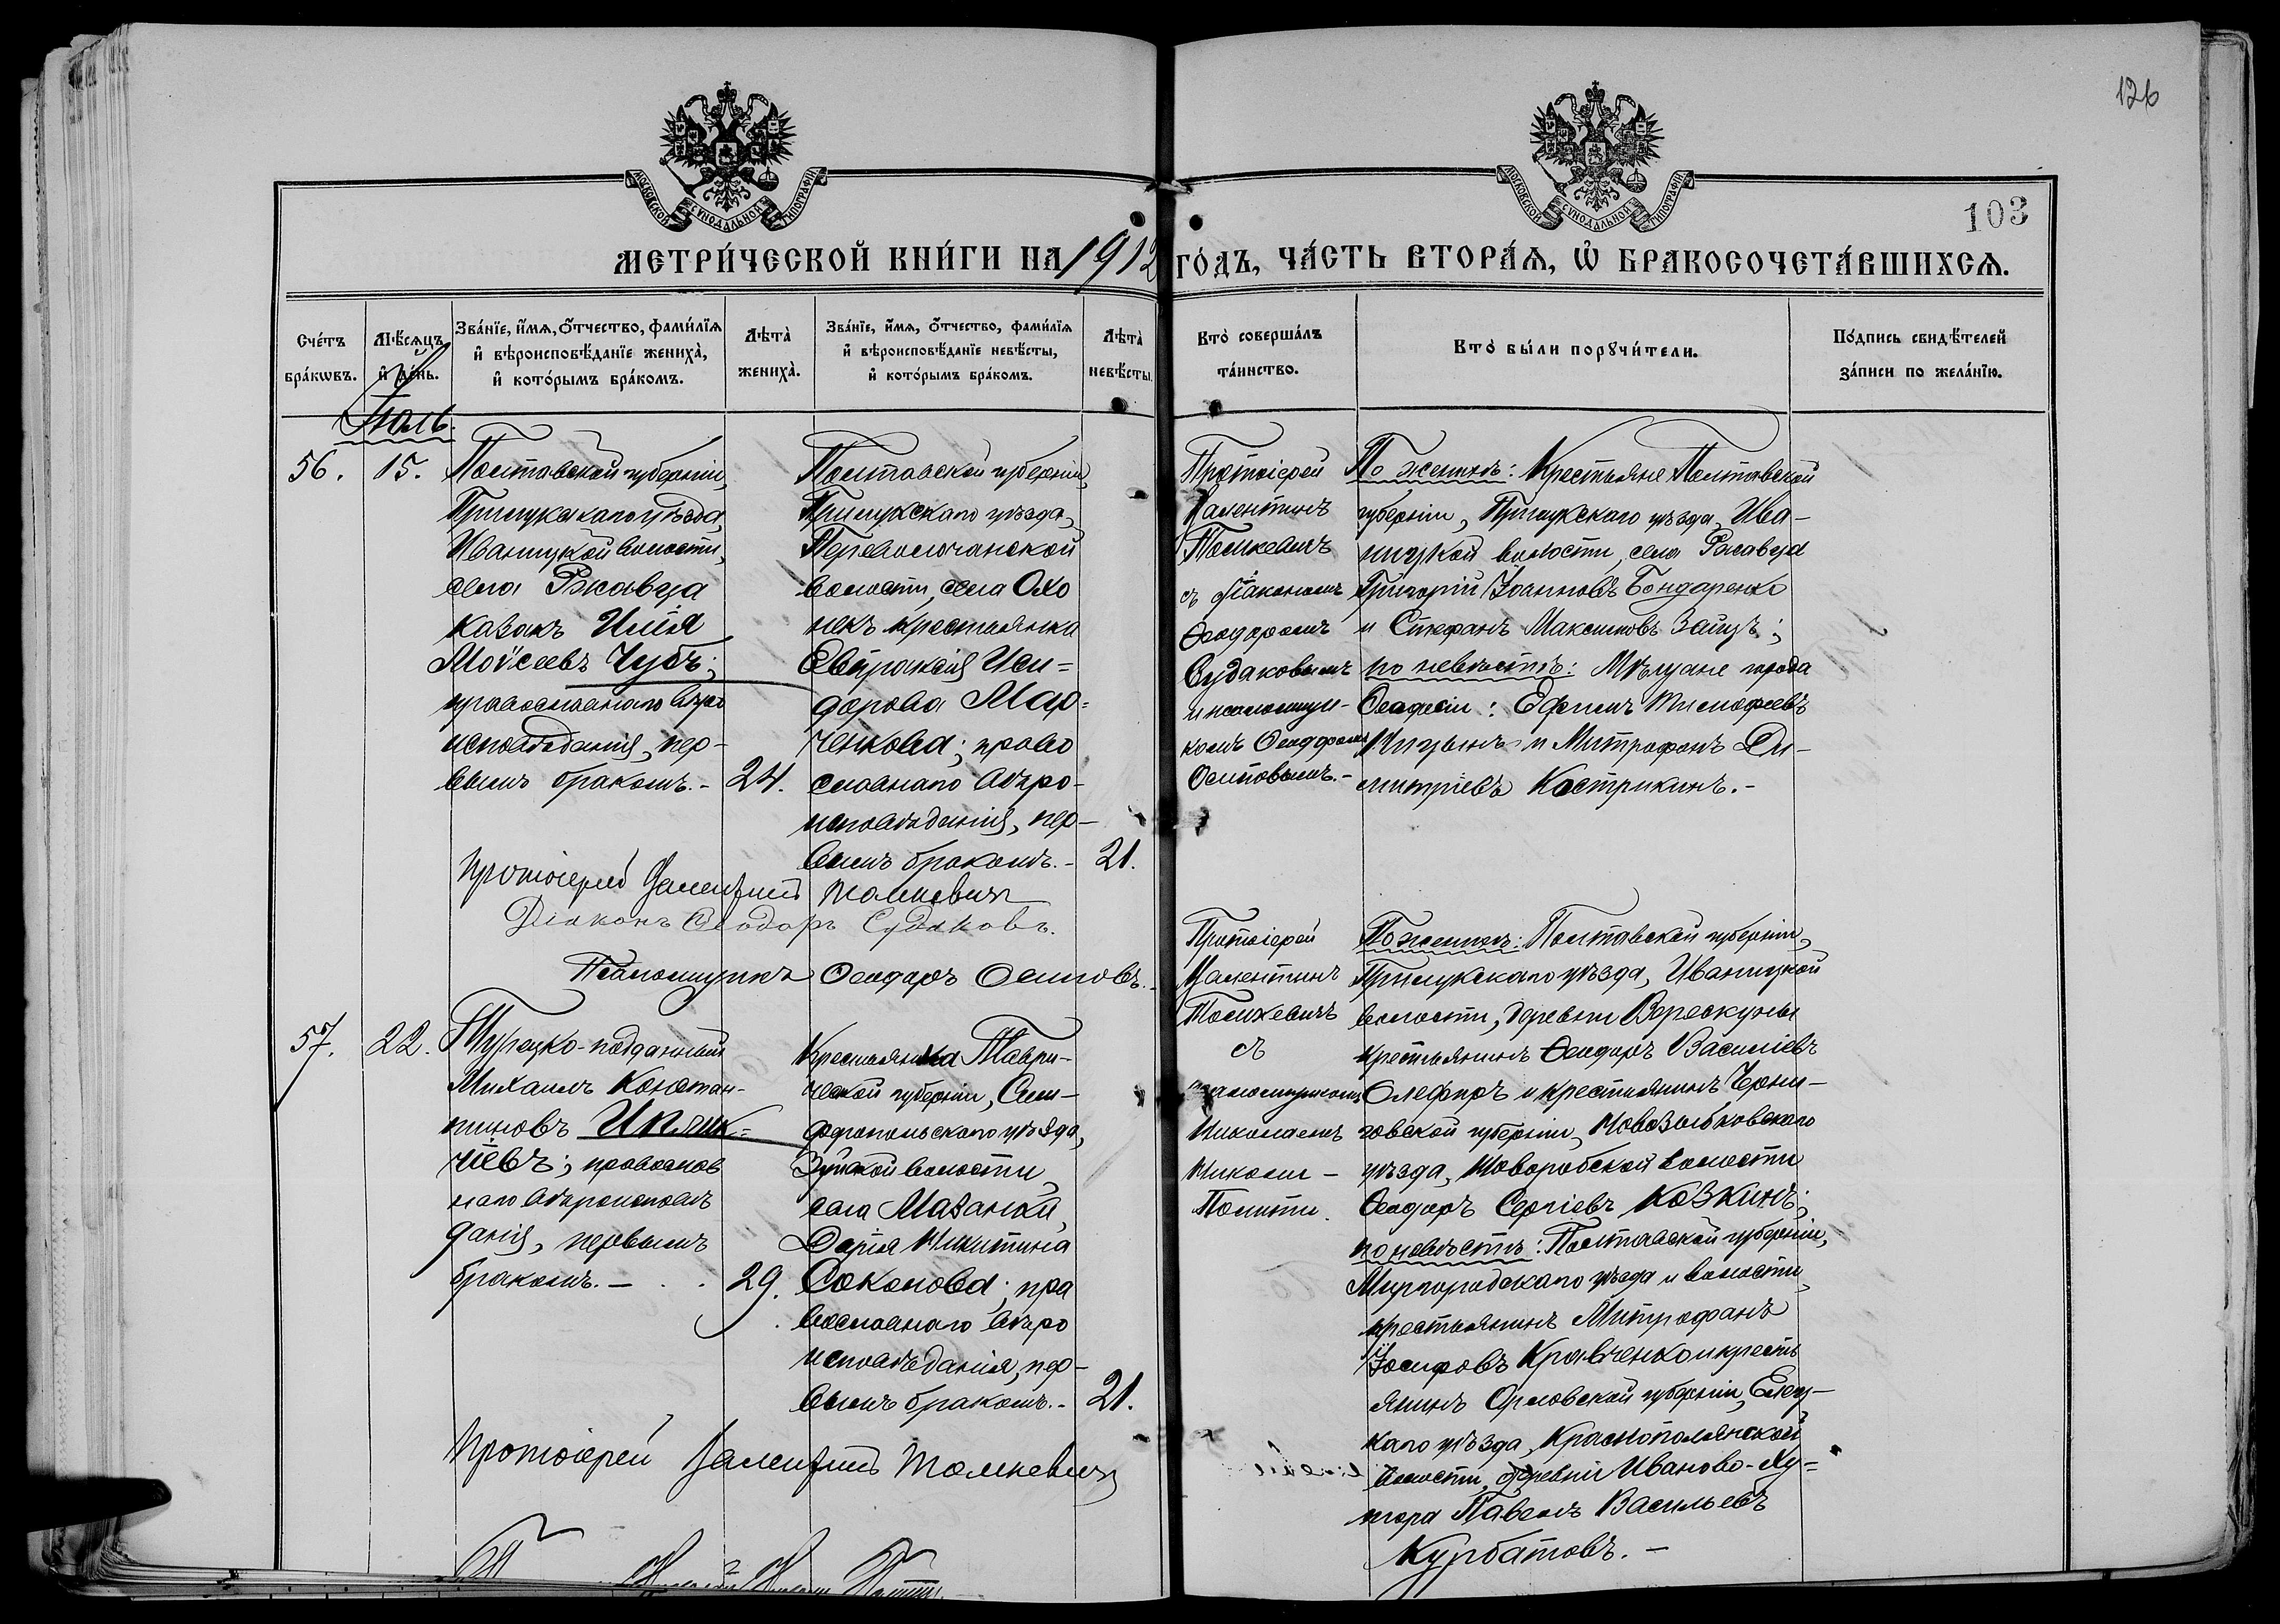 126
МОСКОВСКОЙ СУНОДАЛЬНОЙ ТИПОГРАФІИ
МОСКОВСКОЙ СУНОДАЛЬНОЙ ТИПОГРАФІИ
103
МЕТРИ́ЧЕСКОЙ КНИ́ГИ НА 1912 ГО́ДЪ, ЧА́СТЬ ВТОРА́Ѧ, Ѡ҆ БРАКОСОЧЕТА́ВШИХСѦ.
Сче́тъ бра́кѡвъ.
Мѣ́сѧцъ и҆ де́нь.
Зва́нїе, и҆́мѧ, ѻ҆́тчество, фами́лїѧ
и҆ вѣроисповѣ́данїе жениха̀,
и҆ кото́рымъ бра́комъ.
Лѣта̀ жениха̀.
Зва́нїе, и҆́мѧ, ѻ҆́тчество, фами́лїѧ
и҆ вѣроисповѣ́данїе невѣ́сты,
и҆ кото́рымъ бра́комъ.
Лѣта̀ невѣ́сты.
Кто̀ соверша́лъ
та́инство.
Кто̀ бы́ли порꙋчи́тели.
По́дпись свидѣ́телей
за́писи по жела́нїю.
Іюль.
56.
15.
Полтавской губерніи,
Прилукскаго уѣзда,
Иваницкой волости,
села Ржавца
казакъ Илія
Моѵсеевъ Чубъ;
православнаго вѣро
исповѣданія, пер-
вымъ бракомъ.-
24.
Полтавской губерніи,
Прилукскаго уѣзда,
Переволочанской
волости, села Охо
некъ крестьянка
Евпраксія Иси=
дорова Мар=
ченкова; право
славнаго вѣро-
исповѣданія, пер-
вымъ бракомъ.-
21.
Протоіерей
Валентинъ
Толкевичъ
съ діакономъ
Ѳеодоромъ
Судаковымъ
и псаломщи-
комъ Ѳеодоромъ
Осиповымъ.-
По женихѣ: Крестьяне Полтавской
губерніи, Прилукскаго уѣзда, Ива-
ницкой волости, села Ржавца
Григорій Іоанновъ Бондаренко
и Стефанъ Максимовъ Заяцъ;
по невѣстѣ: Мѣщане города
Ѳеодосіи: Ефимъ Тимофеевъ
и Митрофанъ Ди-
митріевъ Кострикинъ.-
Протоіерей Валентинъ Толкевичъ
Діаконъ Ѳеодоръ Судаковъ.
Псаломщикъ Ѳеодоръ Осиповъ.
57.
22.
Турецко-подданный
Михаилъ Констан-
тиновъ
чіевъ; православ
наго вѣроисповѣ
данія, первымъ
бракомъ.-
29.
Крестьянка Таври-
ческой губерніи, Сим-
феропольскаго уѣзда,
Зуйской волости,
села Мазанки,
Дарія Никитина
Соколова; пра
вославнаго вѣро
исповѣданія, пер-
вымъ бракомъ.-
21.
Протоіерей
Валентинъ
Толкевичъ
съ
псаломщикомъ
Николаемъ
По женихѣ: Полтавской губерніи,
Прилукскаго уѣзда, Иваницкой
волости, деревни Верескуны
крестьянинъ Ѳеодоръ Василіевъ
Олефиръ и крестьянинъ Черни-
говской губерніи, Новозыбковскаго
уѣзда, Новоробской волости
Ѳеодоръ Сергіевъ Козкинъ;
по невѣстѣ: Полтавской губерніи,
Миргородскаго уѣзда и волости,
крестьянинъ Митрофанъ
Іосифовъ Кравченко и кресть
янинъ Орловской губерніи, Елец-
каго уѣзда, Краснополянской
волости, деревни Иваново-Ху=
тора Павелъ Васильевъ
Курбатовъ.-
Протоіерей Валентинъ Толкевичъ